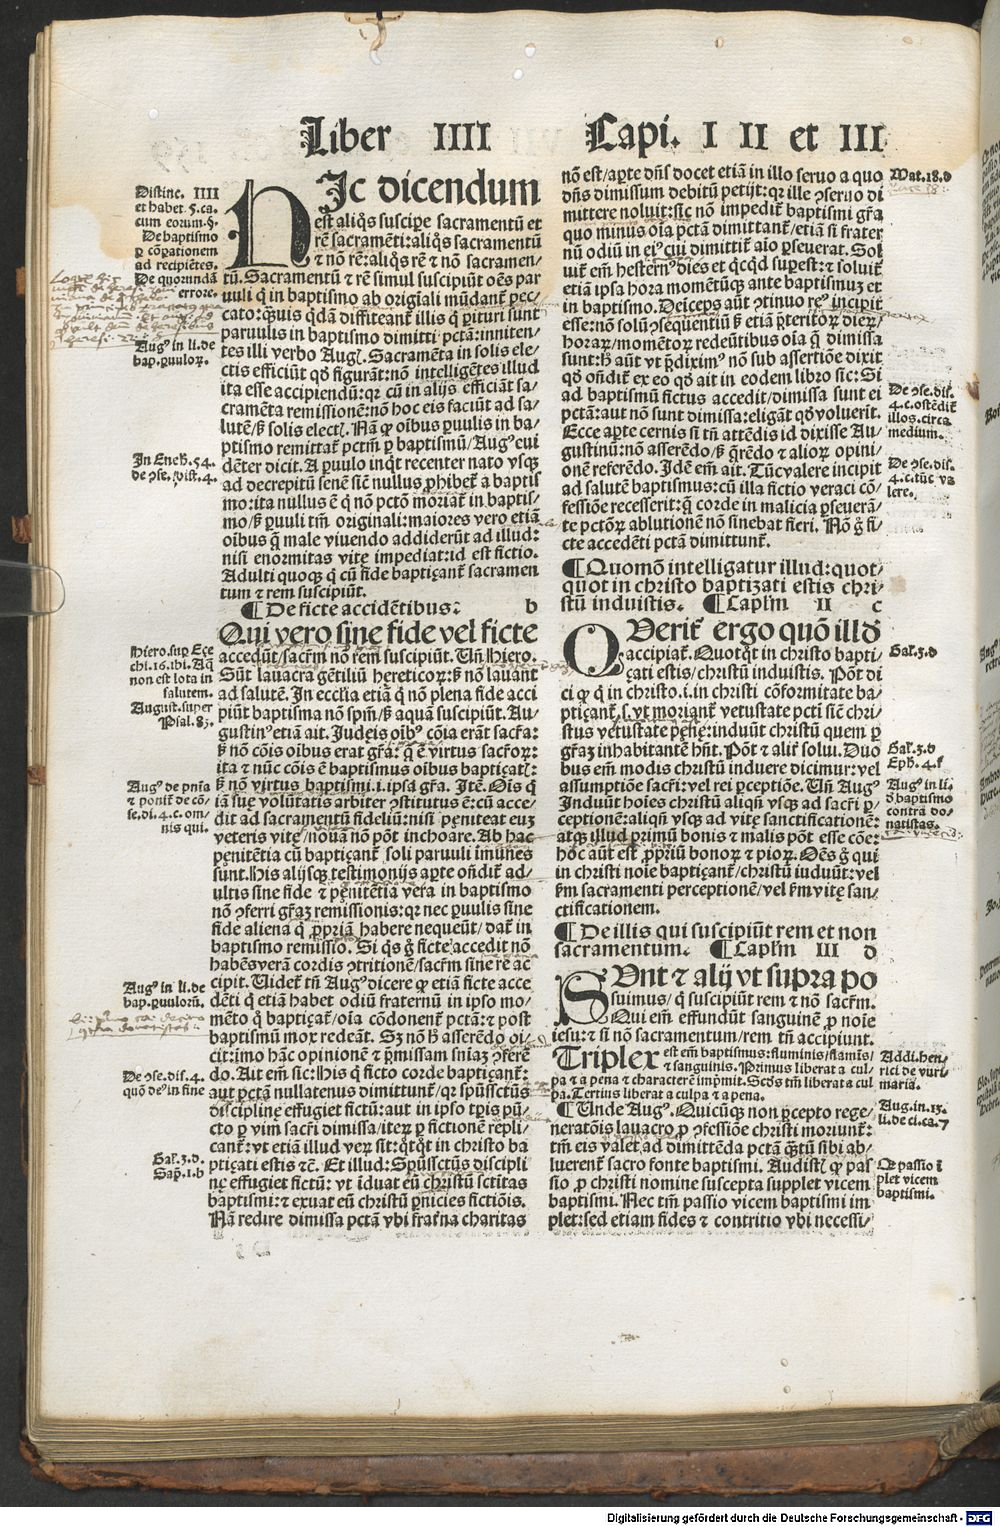 Liber IIII
Capi. I II et III
Distinc. IIII
et habet 5. ca.
cum eorum. §.
De baptismo
ꝑ cōꝑationem
ad recipiētes.
De quorundā
errore.
Augꝰ in li. de
bap. ꝑuuloꝝ.
In Ench. 54.
de ɔse. dist. 4.
HIc dicendum
est aliq̄s suscipe sacramentū et
rē sacramēti: aliq̄s sacramentū
⁊ nō rē: aliq̄s rē ⁊ nō sacramen/
tū. Sacramentū ⁊ rē simul suscipiūt oēs par
uuli q̇ in baptismo ab origīali mūdant᷑ pec/
cato: q̄uis q̇dā diffiteant᷑ illis q̇ ꝑituri sunt
paruulis in baptismo dimitti pctā: inniten/
tes illi verbo Augꝭ. Sacramēta in solis ele/
ctis efficiūt qd̄ figurāt: nō intelligētes illud
ita esse accipiendū: qꝛ cū in alijs efficiāt sa/
cramēta remissionē: nō hoc eis faciūt ad sa/
lutē/ sꝫ solis electꝭ. Nā ꝙ oibus ꝑuulis in ba/
ptismo remittat᷑ pctm̄ ꝑ baptismū/ Augꝰ eui
dēter dicit. A ꝑuulo inq̇t recenter nato vsqꝫ
ad decrepitū senē sic̄ nullus ꝓhibet᷑ a baptis
mo: ita nullus ē q̇ nō pctō moriat᷑ in baptis/
mo/ sꝫ ꝑuuli tm̄ originali: maiores vero etiā
oibus q̄ male viuendo addiderūt ad illud:
nisi enormitas vitę impediat: id est fictio.
Adulti quoqꝫ q̇ cū fide baptiçant᷑ sacramen
tum ⁊ rem suscipiūt.
¶ De ficte accidētibus: b
Qui vero sine fide vel ficte
accedūt/ sacr̄m nō rem suscipiūt. Uñ Hiero.
Sūt lauacra gētiliū hereticoꝝ: sꝫ nō lauant
ad salutē. In eccl̄ia etiā q̇ nō plena fide acci
piūt baptisma nō sp̄m/ sꝫ aquā suscipiūt. Au/
gustinꝰ etiā ait. Judeis oibꝰ cōia erāt sacr̄a:
sꝫ nō cōis oibus erat gr̄a: q̄ ē virtus sacr̄oꝝ:
ita ⁊ nūc cōis ē baptismus oibus baptiçatꝭ:
sꝫ nō virtus baptismi. i. ipsa gr̄a. Itē. Ois q̇
iā suę volūtatis arbiter ɔstitutus ē: cū acce/
dit ad sacramentū fideliū: nisi pęniteat euꝫ
veteris vitę/ nouā nō pōt inchoare. Ab hac
pęnitētia cū baptiçant᷑ soli paruuli imūnes
sunt. His alijsqꝫ testimonijs aꝑte oñdit᷑ ad/
ultis sine fide ⁊ pęnitētia vera in baptismo
nō ɔferri gr̄aꝫ remissionis: qꝛ nec ꝑuulis sine
fide aliena q̇ ꝓpriā habere nequeūt/ dat᷑ in
baptismo remissio. Si q̇s g̊ ficte accedit nō
habēs verā cordis ɔtritionē/ sacr̄m sine re ac
cipit. Uidet᷑ tñ Augꝰ dicere ꝙ etiā ficte acce
dēti q̇ etiā habet odiū fraternū in ipso mo/
mēto q̇ baptiçat᷑/ oīa cōdonent᷑ pctā: ⁊ post
baptismū mox redeāt. Sꝫ nō h̄ asserēdo oi/
cit: imo hāc opinionē ⁊ p̄missam sn̄iaꝫ ɔferē
do. Ait em̄ sic: His q̇ ficto corde baptiçant᷑:
aut pctā nullatenus dimittunt᷑/ qꝛ spūssctūs
disciplinę effugiet fictū: aut in ipso tꝑis pū/
cto ꝑ vim sacr̄i dimissa/ iteꝝ ꝑ fictionē repli/
cant᷑: vt etiā illud veꝝ sit: q̇tq̇t in christo ba
ptiçati estis ⁊c̄. Et illud: Spūssctūs discipli
nę effugiet fictū: vt iduat eū christū sctitas
baptismi: ⁊ exuat eū christū ꝑnicies fictiōis.
Nā redire dimissa pctā vbi frat᷑na charitas
Hiero. sup Eze
chi. 16. ibi. Aq̄
non est lota in
salutem.
August. super
Psal. 83.
Augꝰ de pn̄ia
⁊ ponit᷑ de cō/
se. di. 4. c. om/
nis qui.
Augꝰ in li. de
bap. ꝑuulorū.
De ɔse. dis. 4.
quō deꝰ in fine
Gal. 3. d.
Sap̄. 1. b
nō est/ aꝑte dn̄s docet etiā in illo seruo a quo
dn̄s dimissum debitū petijt: qꝛ ille ɔseruo di
mittere noluit: sic nō impedit᷑ baptismi gr̄a
quo minus oīa pctā dimittant᷑/ etiā si frater
nū odiū in eiꝰ cui dimittit᷑ aīo ꝑseuerat. Sol
uit᷑ em̄ hesternꝰ dies et q̇cq̇d suꝑest: ⁊ soluit᷑
etiā ipsa hora momētūqꝫ ante baptismuꝫ et
in baptismo. Deiceps aūt ɔtinuo reꝰ incipit
esse: nō solū ɔseq̄ntiū sꝫ etiā p̄teritoꝝ dieꝝ/
horaꝝ/ momētoꝝ redeūtibus oīa q̄ dimissa
sunt: h̄ aūt vt p̄diximꝰ nō sub assertiōe dixit
qd̄ oñdit᷑ ex eo qd̄ ait in eodem libro sic: Si
ad baptismū fictus accedit/ dimissa sunt ei
pctā: aut nō sunt dimissa: eligāt qd̄ voluerit.
Ecce aꝑte cernis si tñ attēdis id dixisse Au/
gustinū: nō asserēdo/ sꝫ q̄rēdo ⁊ alioꝝ opini/
onē referēdo. Idē em̄ ait. Tūc valere incipit
ad salutē baptismus: cū illa fictio veraci cō/
fessiōe recesserit: q̄ corde in malicia ꝑseuerā/
te pctōꝝ ablutionē nō sinebat fieri. Nō g̊ fi/
cte accedēti pctā dimittunt᷑.
¶ Quomō intelligatur illud: quot/
quot in christo baptizati estis chri/
stū induistis. ¶ Capl̄m II c
QVerit᷑ ergo quō illd̄
accipiat᷑. Quotq̇t in christo bapti/
çati estis/ christū induistis. Pōt di
ci ꝙ q̇ in christo. i. in christi cōformitate ba/
ptiçant᷑. s. vt moriant᷑ vetustate pcti sic̄ chri/
stus vetustate pęnę: induūt christū quem ꝑ
gr̄aꝫ inhabitantē hn̄t. Pōt ⁊ alir̄ solui. Duo
bus em̄ modis christū induere dicimur: vel
assumptiōe sacr̄i: vel rei ꝑceptiōe. Uñ Augꝰ
Induūt hoies christū aliqñ vsqꝫ ad sacr̄i ꝑ/
ceptionē: aliqñ vsqꝫ ad vitę sanctificationē:
atqꝫ illud primū bonis ⁊ malis pōt esse cōe:
hoc aūt est ꝓpriū bonoꝝ ⁊ pioꝝ. Oēs g̊ qui
in christi noīe baptiçant᷑/ christū iduūt: vel
ẜm sacramenti perceptionē/ vel ẜm vitę san/
ctificationem.
¶ De illis qui suscipiūt rem et non
sacramentum. ¶ Capl̄m III d
SVnt ⁊ alij vt supra po
suimus/ q̇ suscipiūt rem ⁊ nō sacr̄m.
Qui em̄ effundūt sanguinē ꝓ noīe
iesu: ⁊ si nō sacramentum/ rem tñ accipiunt.
Triplex est em̄ baptismus: fluminis/ flamīs/
⁊ sanguinis. Primus liberat a cul/
pa ⁊ a pena ⁊ characterē imp̄mit. Scd̄s tm̄ liberat a cul
pa. Tertius liberat a culpa ⁊ a pena.
¶ Unde Augꝰ. Quicūqꝫ non ꝑcepto rege/
neratōis lauacro ꝓ ɔfessiōe christi moriunt᷑:
tm̄ eis valet ad dimittēda pctā q̄tū sibi ab/
luerent᷑ sacro fonte baptismi. Audistꝭ ꝙ pas
sio ꝓ christi nomine suscepta supplet vicem
baptismi. Nec tm̄ passio vicem baptismi im
plet: sed etiam fides ⁊ contritio vbi necessi/
Mat. 18. d
De ɔse. dis.
4. c. ostēdit᷑
illos. circa
medium.
De ɔse. dis.
4. c. tūc va
lere.
Gal. 3. d
Gal. 3. d
Eph. 4. f
Augꝰ in li.
d̄ baptismo
contra do/
natistas.
Addi. hen/
rici de vuri
maria.
Aug. in. 13.
li. de ci. ca. 7
Qꝫ passio ī
plet vicem
baptismi.
Digitalisierung gefördert durch die Deutsche Forschungsgemeinschaft - DFG